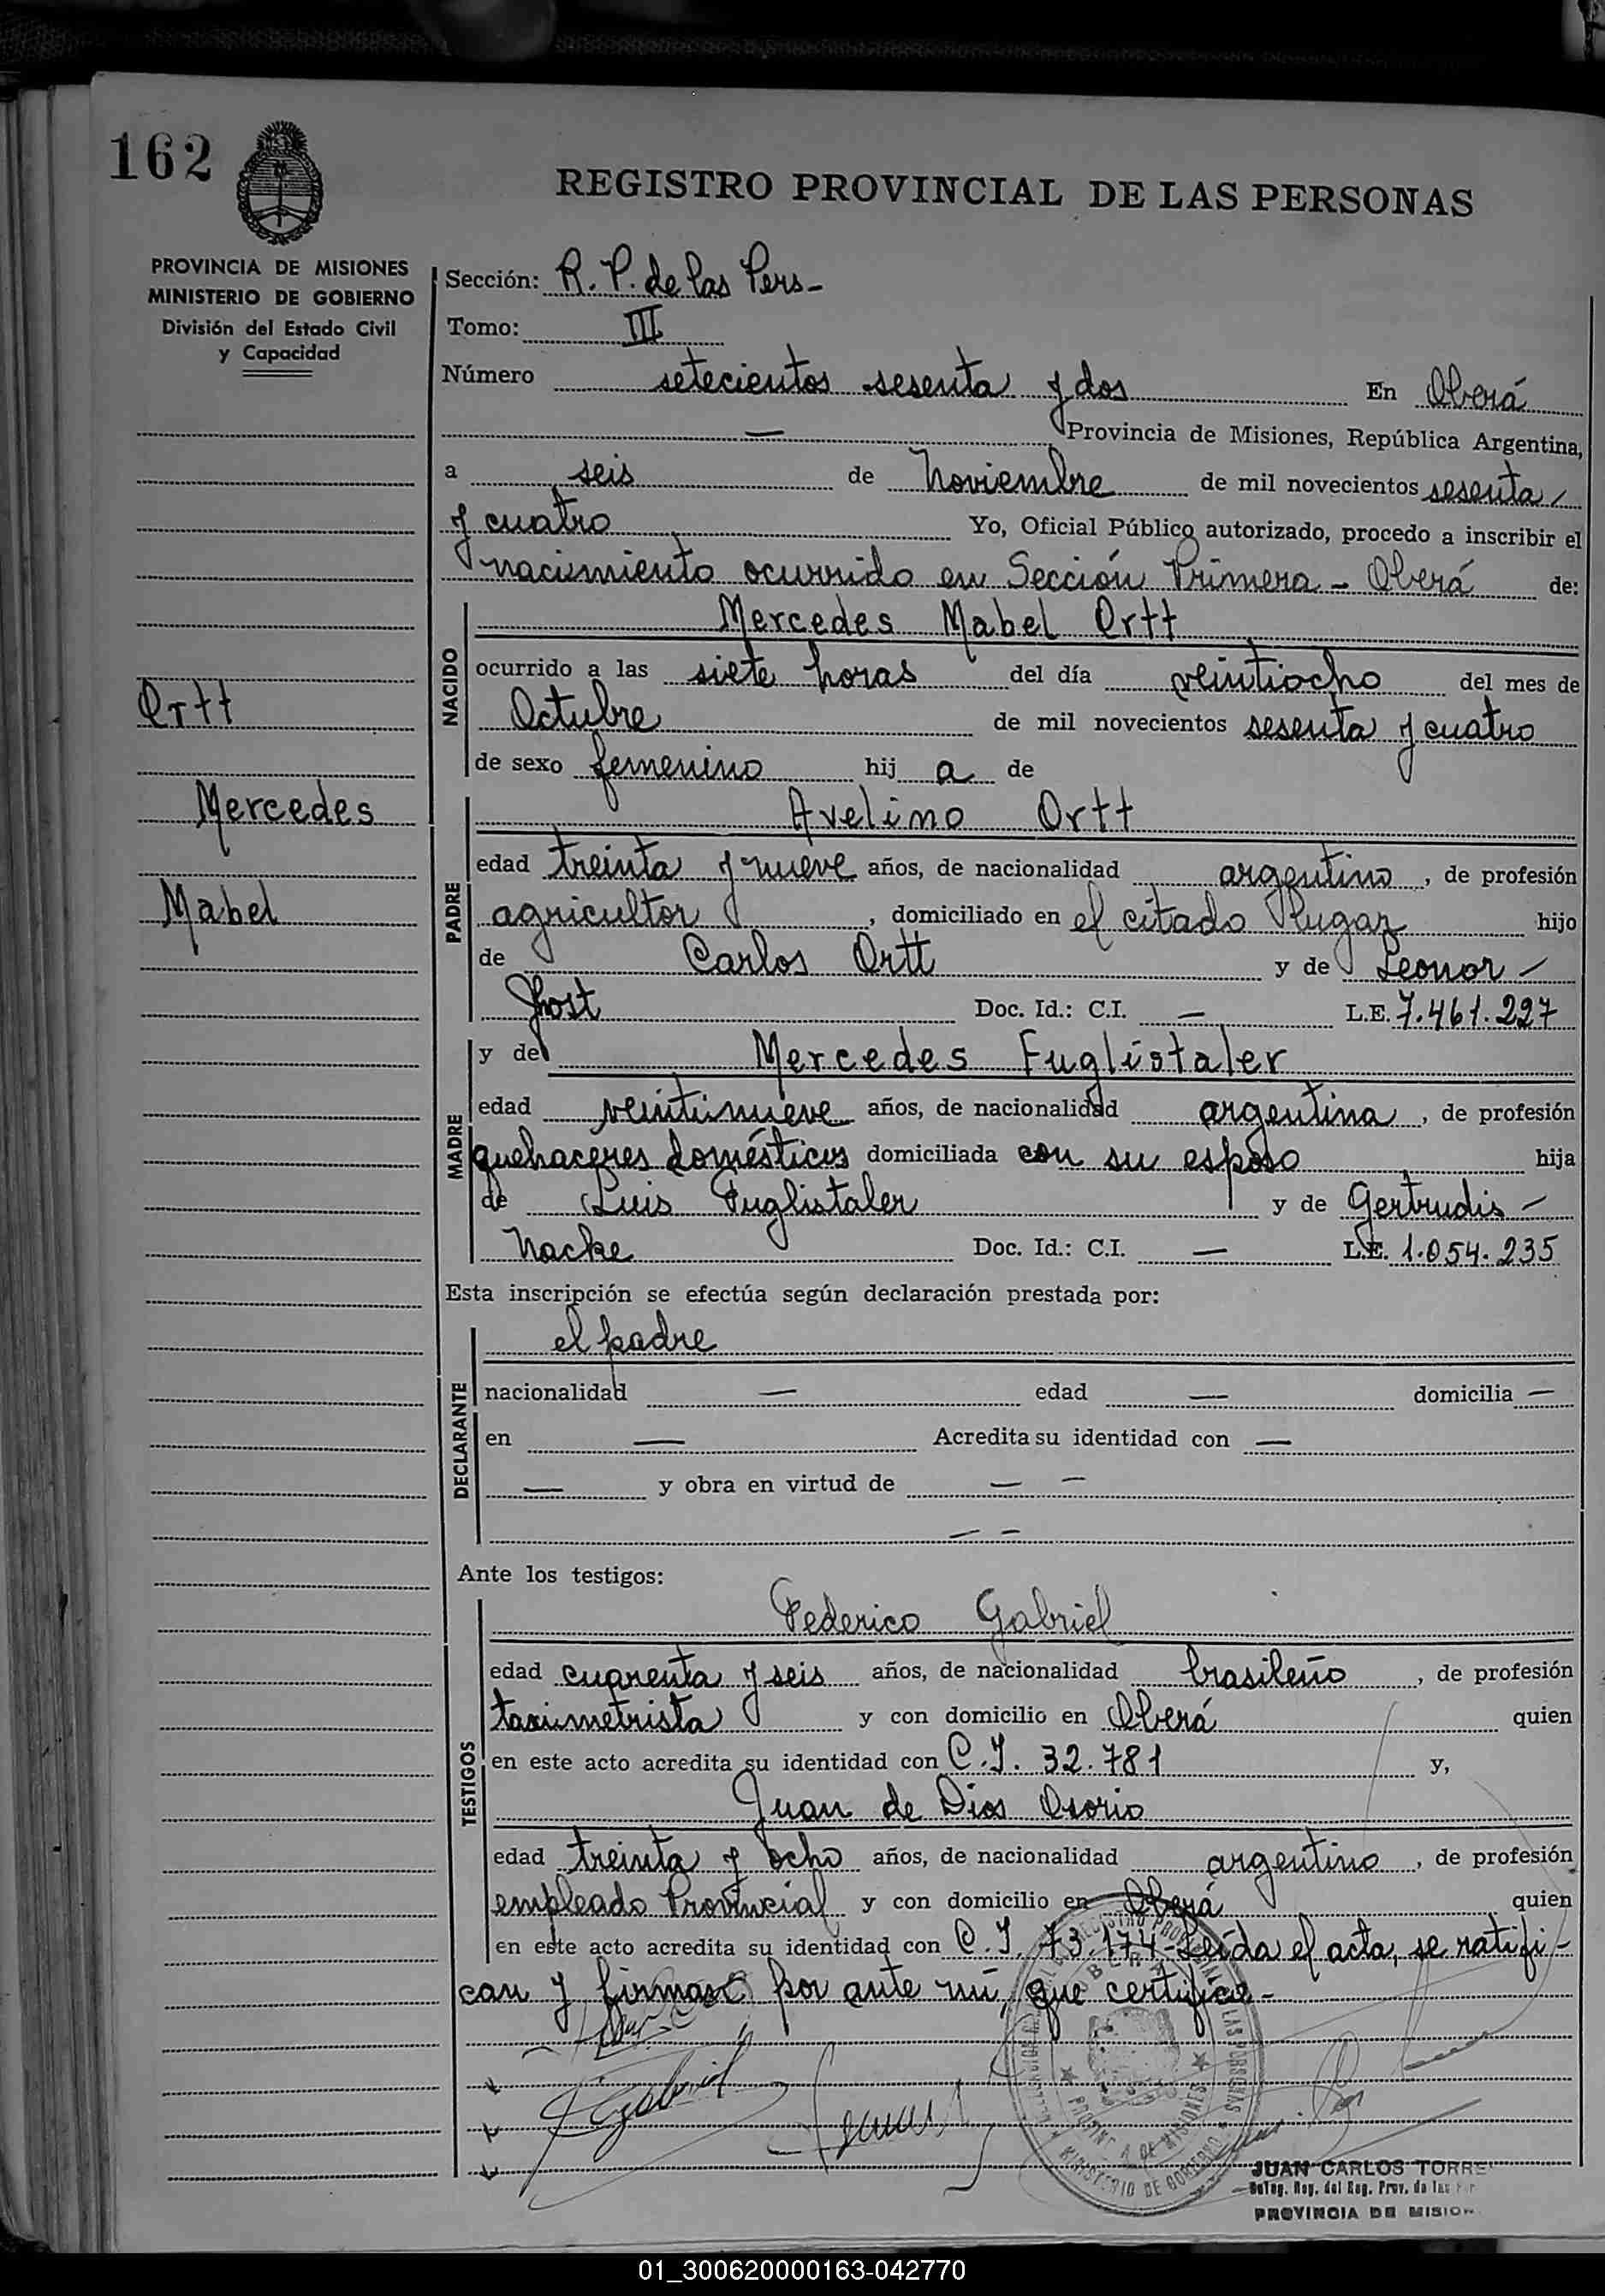 162
REGISTRO PROVINCIAL DE LAS PERSONAS
PROVINCIA DE MISIONES
MINISTERIO DE GOBIERNO
División del Estado Civil
y Capacidad
Sección: R. P. de las Pers-
Tomo: III
Número setecientos sesenta y dos En Oberá
— Provincia de Misiones, República Argentina,
a seis de Noviembre de mil novecientos sesenta
y cuatro Yo, Oficial Público autorizado, procedo a inscribir el
nacimiento ocurrido en Sección Primera - Oberá de:
NACIDO
Mercedes Mabel Ortt
ocurrido a las siete horas del día veintiocho del mes de
Octubre de mil novecientos sesenta y cuatro
de sexo femenino hij a de
Ortt
Mercedes
Mabel
PADRE
Avelino Ortt
edad treinta y nueve años, de nacionalidad argentino, de profesión
agricultor, domiciliado en el citado lugar hijo
de Carlos Ortt y de Leonor -
Jhost Doc. Id.: C.I. — L.E. 7.461.227
MADRE
y de Mercedes Fuglistaler
edad veintinueve años, de nacionalidad argentina, de profesión
quehaceres domésticos domiciliada con su esposo hija
de Luis Fuglistaler y de Gertrudis -
Nacke Doc. Id.: C.I. — L.E. 1.054.235
Esta inscripción se efectúa según declaración prestada por:
DECLARANTE
el padre
nacionalidad — edad — domicilia —
en — Acredita su identidad con —
— y obra en virtud de — —
— —
Ante los testigos:
TESTIGOS
Federico Gabriel
edad cuarenta y seis años, de nacionalidad brasileño, de profesión
taximetrista y con domicilio en Oberá quien
en este acto acredita su identidad con C.I. 32.781 y,
Juan de Dios Osorio
edad treinta y ocho años, de nacionalidad argentino, de profesión
empleado Provincial y con domicilio en Oberá quien
en este acto acredita su identidad con C.I. 73.174- Leída el acta, se ratifi-
can y firman por ante mí, que certifico-
Gabriel
OBERÁ
PROVINCIA DE MISIONES
MINISTERIO DE GOBIERNO
JUAN CARLOS TORRE
PROVINCIA DE MISION
01_300620000163-042770